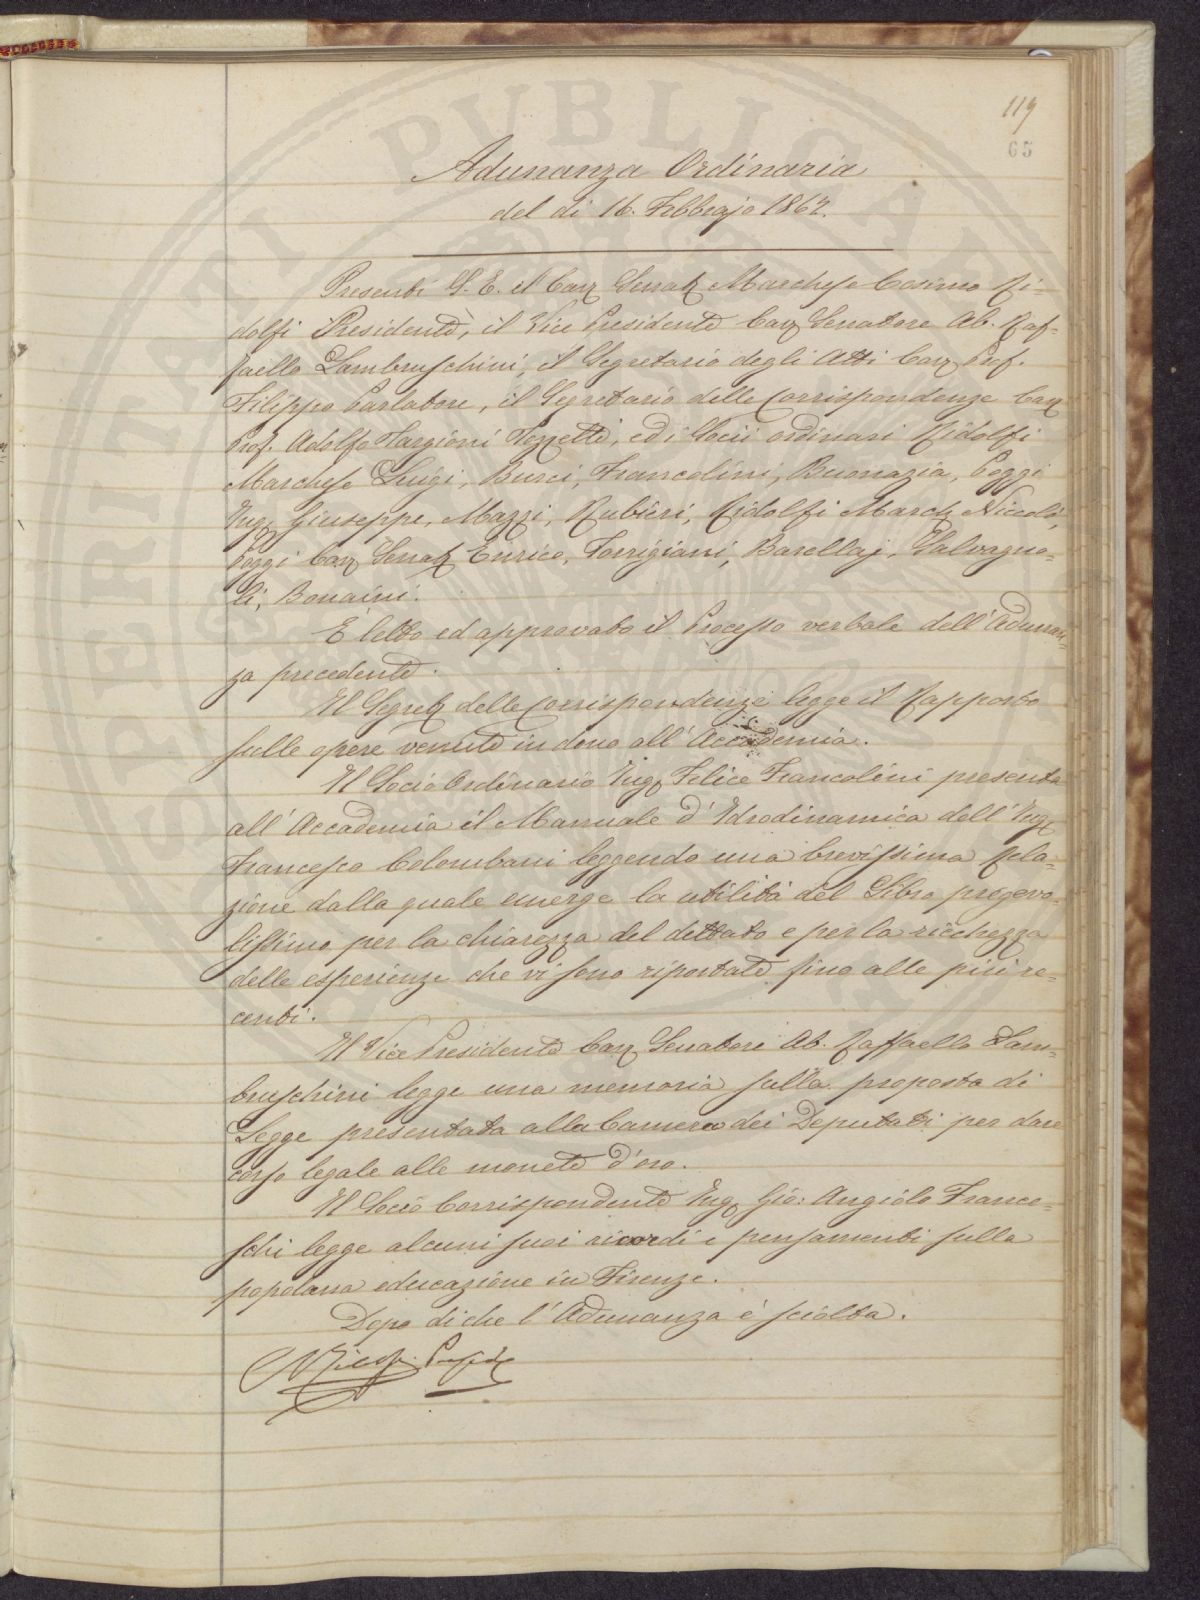 119
65
Adunanza Ordinaria
del dì 16. Febbrajo 1862.
Presenti S. E. il Cav. Senat. Marchese Cosimo Ri-
dolfi Presidente, il Vice Presidente Cav. Senatore Ab. Raf-
faello Lambruschini, il Segretario degli Atti Cav. Prof.
Filippo Parlatore, il Segretario delle Corrispondenze Cav.
Prof. Adolfo Targioni Tozzetti, ed i Socii ordinari Ridolfi
Marchese Luigi, Burci, Francolini, Buonazia, Poggi
Ing. Giuseppe, Mazzi, Rubieri, Ridolfi March. Niccolò,
Poggi Cav. Senat. Enrico, Torrigiani, Barellaj, Salvagno-
li, Bonaini.
È letto ed approvato il Processo verbale dell'Adunan-
za precedente.
Il Segret. delle Corrispondenze legge il Rapporto
sulle opere venute in dono all'Accademia.
Il Socio Ordinario Ing. Felice Francolini presenta
all'Accademia il Manuale d'Idrodinamica dell'Ing.
Francesco Colombani leggendo una brevissima Rela-
zione dalla quale emerge la utilità del Libro pregevo-
lissimo per la chiarezza del dettato e per la ricchezza
delle esperienze che vi sono riportate fino alle più re-
centi.
Il Vice Presidente Cav. Senatore Ab. Raffaello Lam-
bruschini legge una memoria sulla proposta di
Legge presentata alla Camera dei Deputati per dare
corso legale alle monete d'oro.
Il Socio Corrispondente Ing. Gio: Angiolo France-
schi legge alcuni suoi ricordi e pensamenti sulla
popolana educazione in Firenze.
Dopo di che l'Adunanza è sciolta.